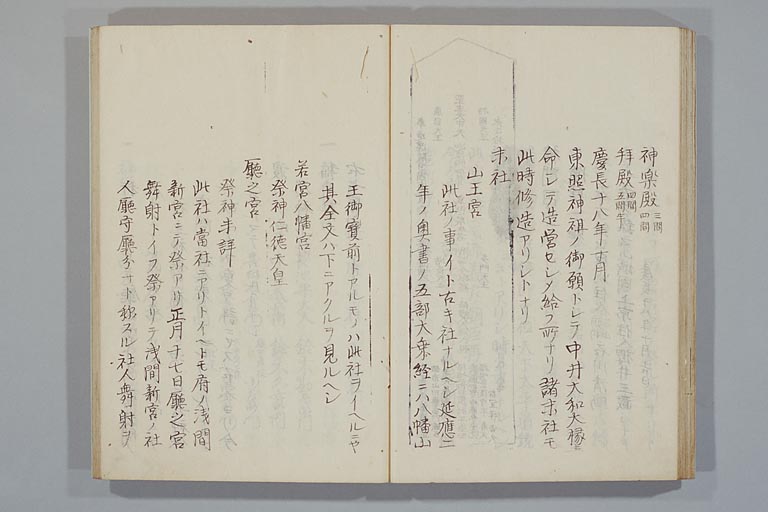 神楽殿 三間四間
拝殿 四間五間半
慶長十八年十月
東照神祖ノ御願トシテ中井大和大掾ニ
命シテ造営セシメ給フ所ナリ諸末社モ
此時修造アリシトナリ
末社
山王宮
此社ノ事イト古キ社ナルヘシ延應二
年ノ奥書ノ五部大乗経ニハ八幡山
王御寳前トアルモノハ此社ヲイヘルニヤ
其全文ハ下ニアクルヲ見ルヘシ
若宮八幡宮
祭神仁徳天皇
廳之宮
祭神未詳
此社ハ當社ニアリトイヘトモ府ノ浅間
新宮ニテ祭アリ正月十七日廳之宮
舞射トイフ祭アリテ浅間新宮ノ社
人廳守廳分ナト称スル社人舞射ヲ